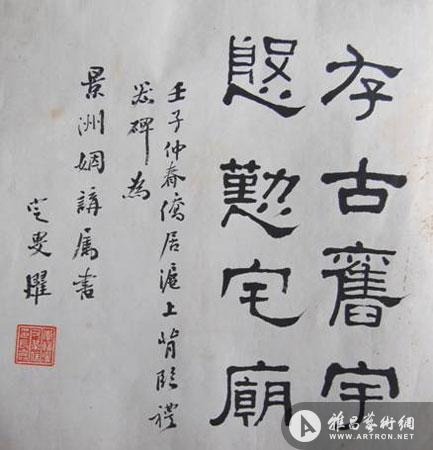 存古舊宇
慇懃宅廟
壬子仲春僑居滬上背臨禮
器碑為
景洲姻講屬書
定叟曜
雅昌藝術網
WWW.ARTRON.NET